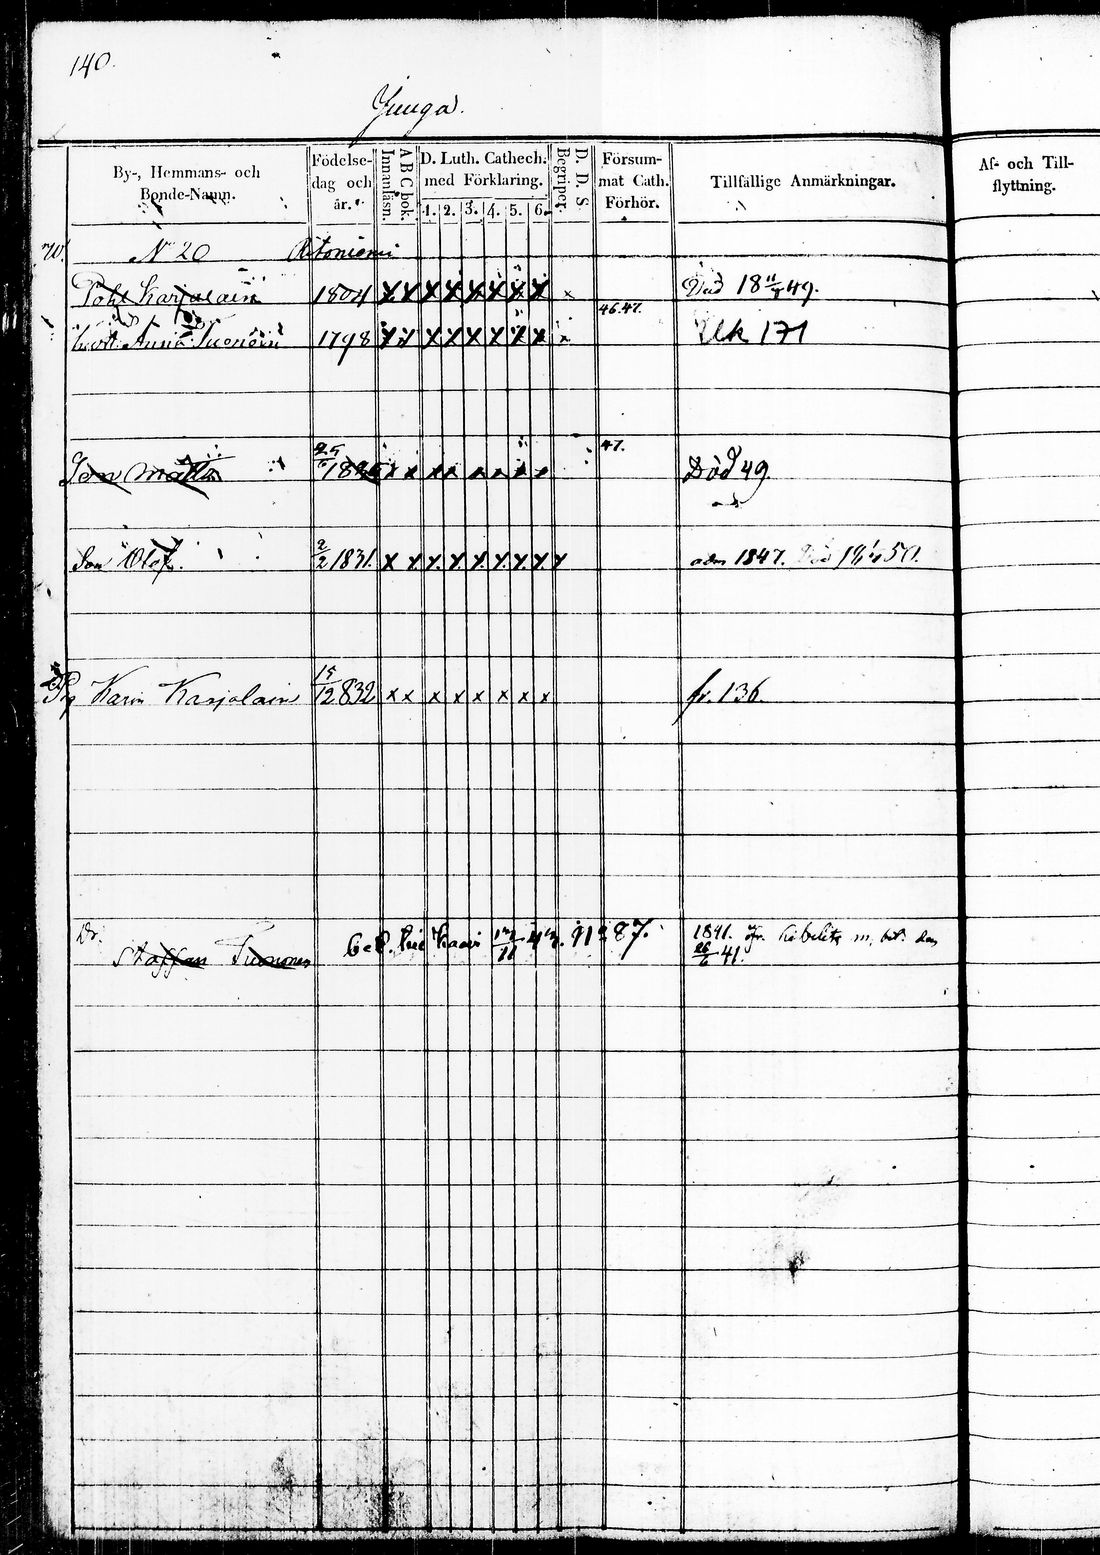 140.
Junga.
By-, Hemmans- och Bonde-Namn.
Födelse-dag och år.
Innanläsn.
A B C bok.
D. Luth. Cathech. med Förklaring.
1. 2. 3. 4. 5. 6.
Begriper.
D. D. S.
Försum-mat Cath. Förhör.
Tillfällige Anmärkningar.
Af- och Till-flyttning.
N 20 Ritoniemi
Pohl Karjalain 1804 x x x x x x x x x Död 18 11/4 49.
Anna Tuenoin 1798 x x x x x x x x x 46.47. Uk 171
Son Matts 1826 x x x x x x x x 47. Död 49.
Son Olof. 2/2 1831. x x x x x x x x x adm 1847. 50.
Pig Karin Karjalain 15/12 832 x x x x x x x x fr. 136.
Dr. Staffan Tuenonen 287. 1841. fr. m, bet. den 26/6 41.